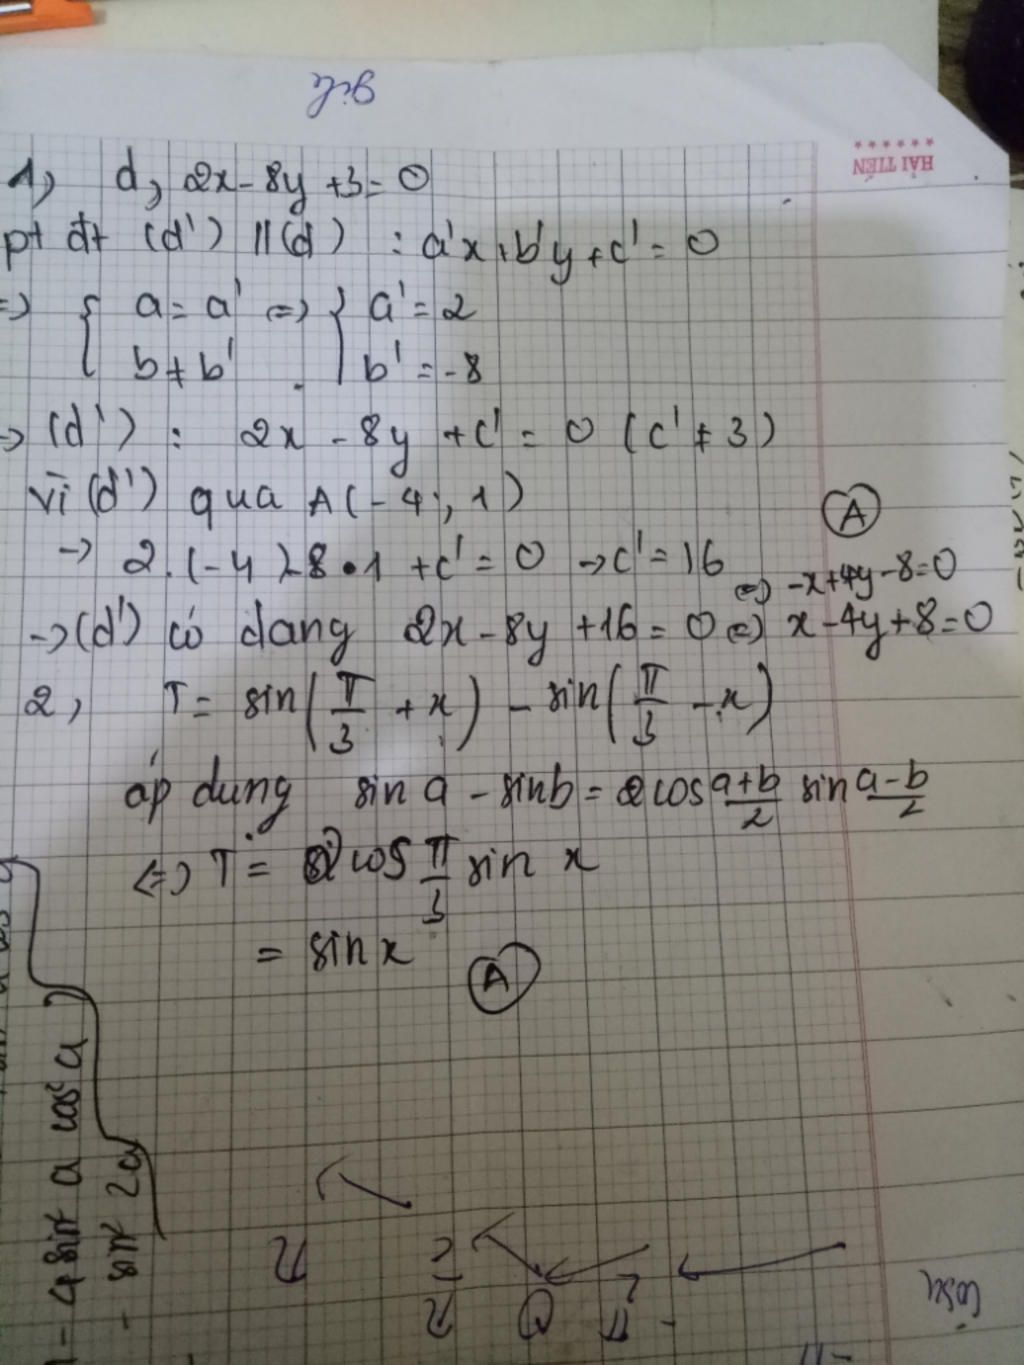 HẢI TIẾN
1, d, 2x - 8y + 3 = 0
pt đt (d') // (d) : a'x + b'y + c' = 0
=> { a = a' <=> { a' = 2
b = b' b' = -8
-> (d') : 2x - 8y + c' = 0 (c' ≠ 3)
vì (d') qua A(-4; 1)
A
-> 2.(-4) - 8 . 1 + c' = 0 -> c' = 16
<=> -x + 4y - 8 = 0
-> (d') có dang 2x - 8y + 16 = 0 <=> x - 4y + 8 = 0
2, T = sin(π/3 + x) - sin(π/3 - x)
áp dụng sin a - sin b = 2 cos a+b/2 sin a-b/2
<=> T = 2 cos π/3 sin x
= sin x
A
- 4 sin² a cos² a
- sin² 2a